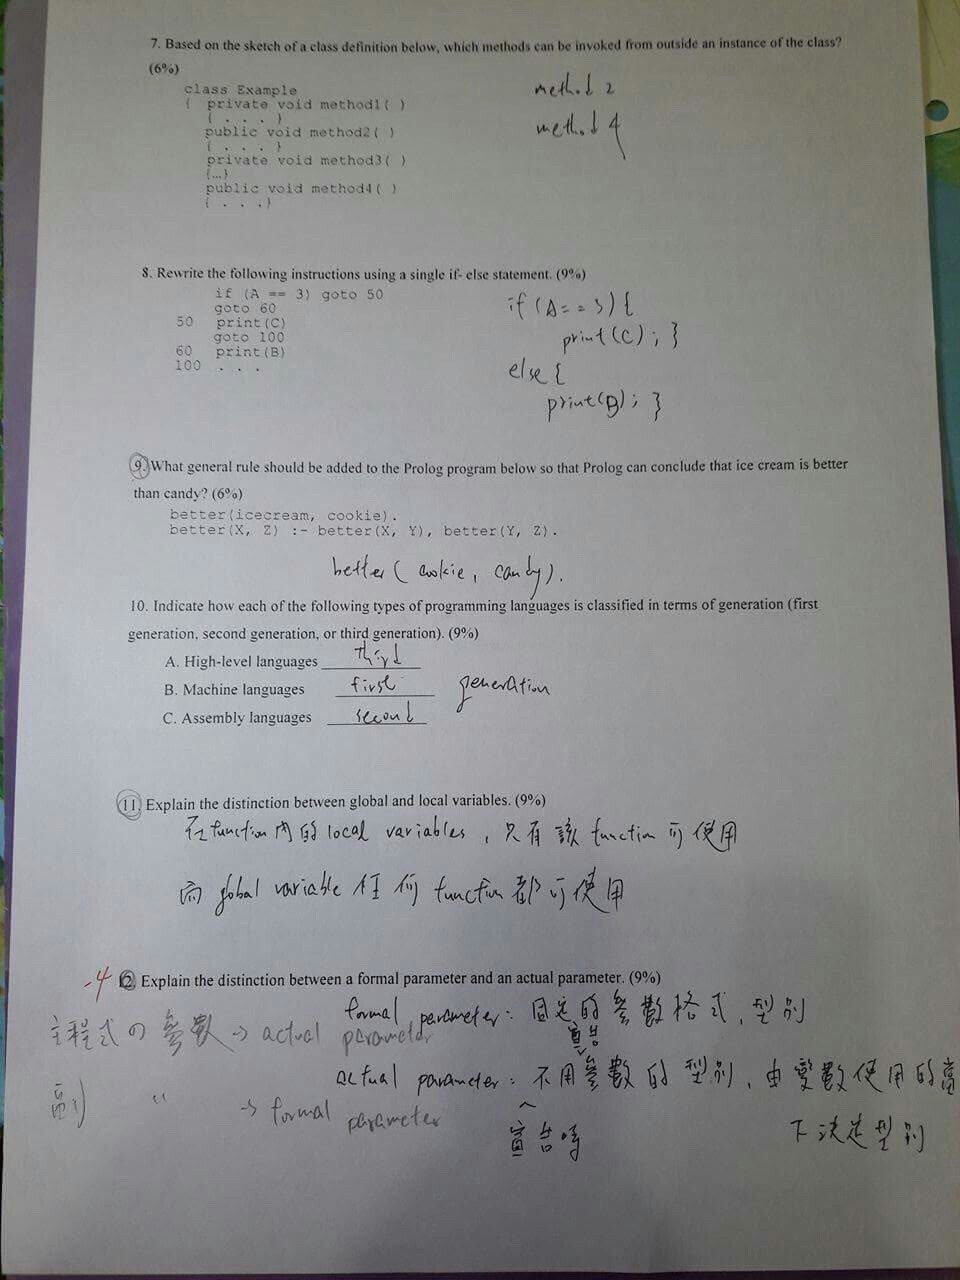 7. Based on the sketch of a class definition below, which methods can be invoked from outside an instance of the class?
(6%)
class Example
{ private void method1( )
{ . . . }
public void method2( )
{ . . . }
private void method3( )
{...}
public void method4( )
{ . . .}
method 2
method 4
8. Rewrite the following instructions using a single if- else statement. (9%)
if (A == 3) goto 50
goto 60
50 print(C)
goto 100
60 print(B)
100 . . .
if (A==3) {
print(C); }
else {
print(B); }
9. What general rule should be added to the Prolog program below so that Prolog can conclude that ice cream is better
than candy? (6%)
better(icecream, cookie).
better(X, Z) :- better(X, Y), better(Y, Z).
better ( cookie, candy).
10. Indicate how each of the following types of programming languages is classified in terms of generation (first
generation, second generation, or third generation). (9%)
A. High-level languages third
B. Machine languages first generation
C. Assembly languages second
11. Explain the distinction between global and local variables. (9%)
在function內的local variables，只有該function可使用
而global variable任何function都可使用
-4 12. Explain the distinction between a formal parameter and an actual parameter. (9%)
formal parameter: 固定的參數格式、型別
主程式の參數→actual parameter
actual parameter: 不用參數的型別、由變數使用的當
副 " → formal parameter
宣告時
下決定型別